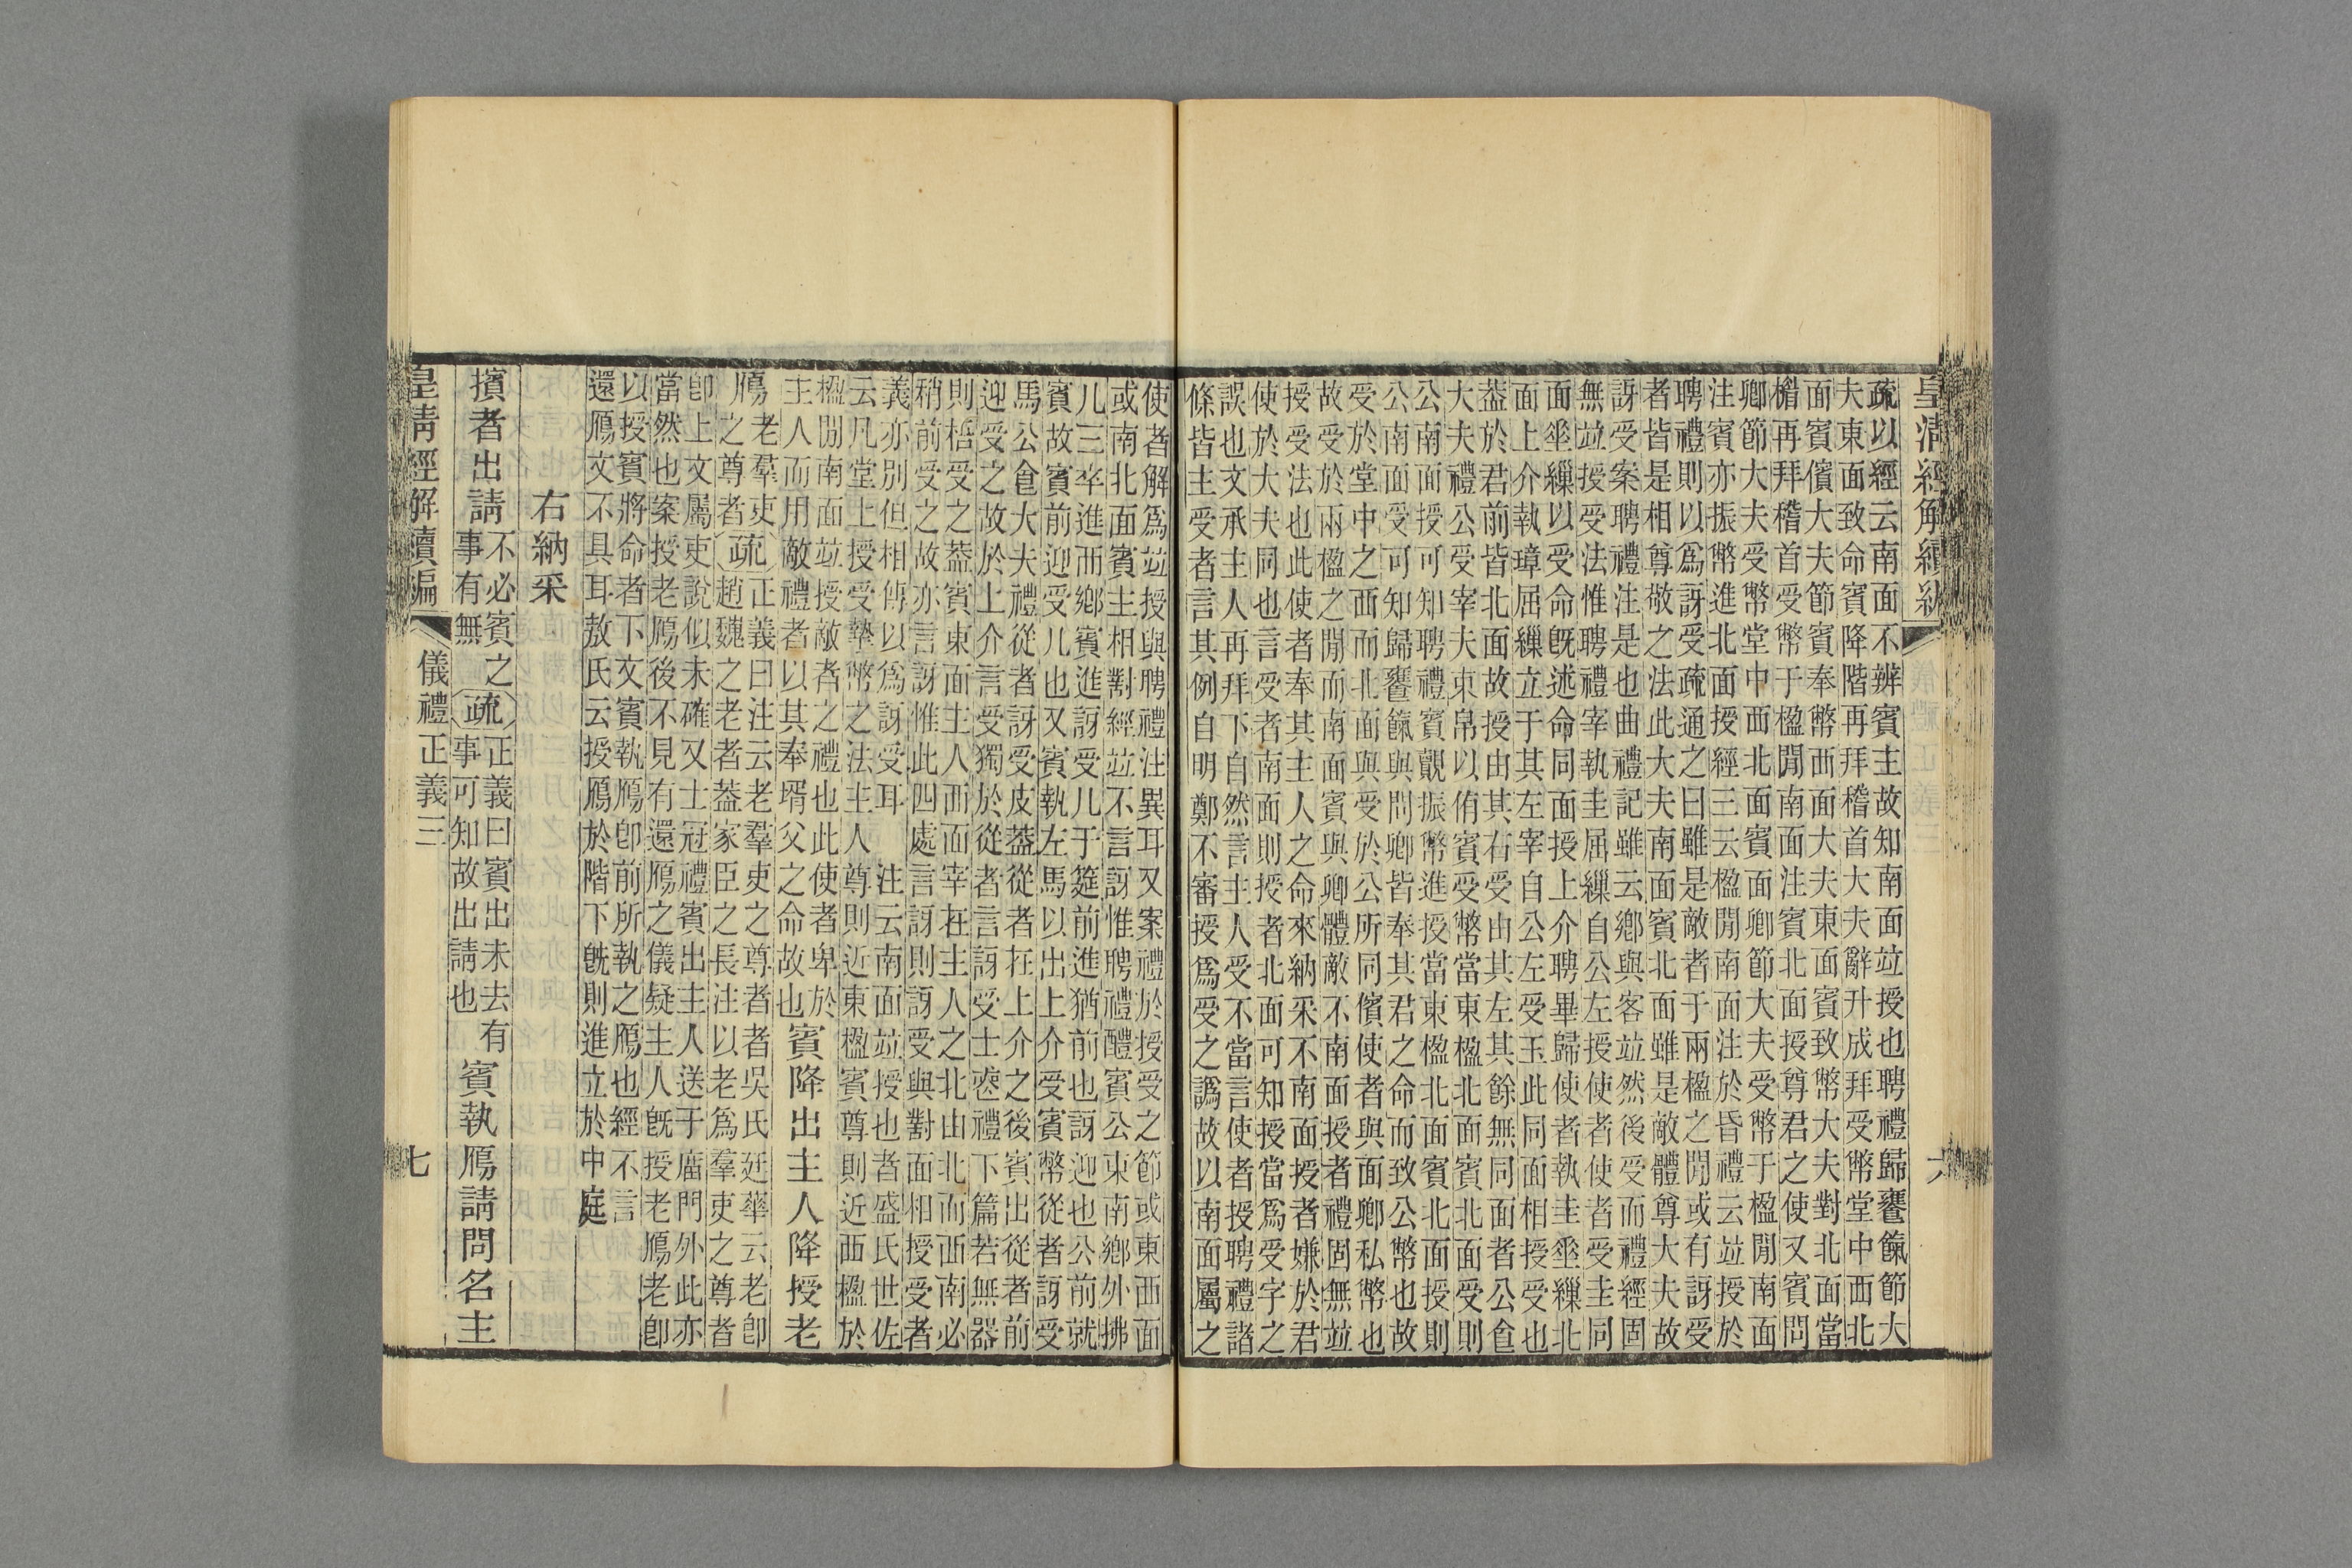 皇清經解續編
六
疏以經云南面不辨賓主故知南面竝授也聘禮歸饔餼節大
夫東面致命賓降階再拜稽首大夫辭升成拜受幣堂中西北
面賓儐大夫節賓奉幣西面大夫東面賓致幣大夫對北面當
楣再拜稽首受幣于楹閒南面注賓北面授尊君之使又賓問
卿節大夫受幣堂中西北面賓面卿節大夫受幣于楹閒南面
注賓亦振幣進北面授經三云楹閒南面注於昏禮云竝授於
聘禮則以爲訝受疏通之曰雖是敵者于兩楹之閒或有訝受
者皆是相尊敬之法此大夫南面賓北面雖是敵體尊大夫故
訝受案聘禮注是也曲禮記雖云鄉與客竝然後受而禮經固
無竝授受法惟聘禮宰執圭屈繅自公左授使者使者受圭同
面垂繅以受命旣述命同面授上介聘畢歸使者執圭垂繅北
面上介執璋屈繅立于其左宰自公左受玉此同面相授受也
蓋於君前皆北面故授由其右受由其左其餘無同面者公食
大夫禮公受宰夫束帛以侑賓受幣當東楹北面賓北面受則
公南面授可知聘禮賓覿振幣進授當東楹北面賓北面授則
公南面受可知歸饔餼與問卿皆奉其君之命而致公幣也故
受於堂中之西而北面與受於公所同儐使者與面卿私幣也
故受於兩楹之閒而南面賓與卿體敵不南面授者禮固無竝
授受法也此使者奉其主人之命來納采不南面授者嫌於君
使於大夫同也言受者南面則授者北面可知授當爲受字之
誤也文承主人再拜下自然言主人受不當言使者授聘禮諸
條皆主受者言其例自明鄭不審授爲受之譌故以南面屬之
使者解爲竝授與聘禮注異耳又案禮於授受之節或東西面
或南北面賓主相對經竝不言訝惟聘禮醴賓公東南鄉外拂
几三卒進西鄉賓進訝受几于筵前進猶前也訝迎也公前就
賓故賓前迎受几也又賓執左馬以出上介受賓幣從者訝受
馬公食大夫禮從者訝受皮蓋從者在上介之後賓出從者前
迎受之故於上介言受獨於從者言訝受士喪禮下篇若無器
則梧受之蓋賓東面主人西面宰在主人之北由北而西南必
稍前受之故亦言訝惟此四處言訝則訝受與對面相授受者
義亦別但相傳以爲訝受耳　注云南面竝授也者盛氏世佐
云凡堂上授受摯幣之法主人尊則近東楹賓尊則近西楹於
楹閒南面竝授敵者之禮也此使者卑於
主人而用敵禮者以其奉壻父之命故也
賓降出主人降授老
鴈
老羣吏
之尊者
疏
正義曰注云老羣吏之尊者者吳氏廷華云老卽
趙魏之老者蓋家臣之長注以老爲羣吏之尊者
卽上文屬吏說似未確又士冠禮賓出主人送于廟門外此亦
當然也案授老鴈後不見有還鴈之儀疑主人旣授老鴈老卽
以授賓將命者下文賓執鴈卽前所執之鴈也經不言
還鴈文不具耳敖氏云授鴈於階下旣則進立於中庭
右納采
擯者出請
不必賓之
事有無
疏
正義曰賓出未去有
事可知故出請也
賓執鴈請問名主
皇清經解續編
儀禮正義三
七